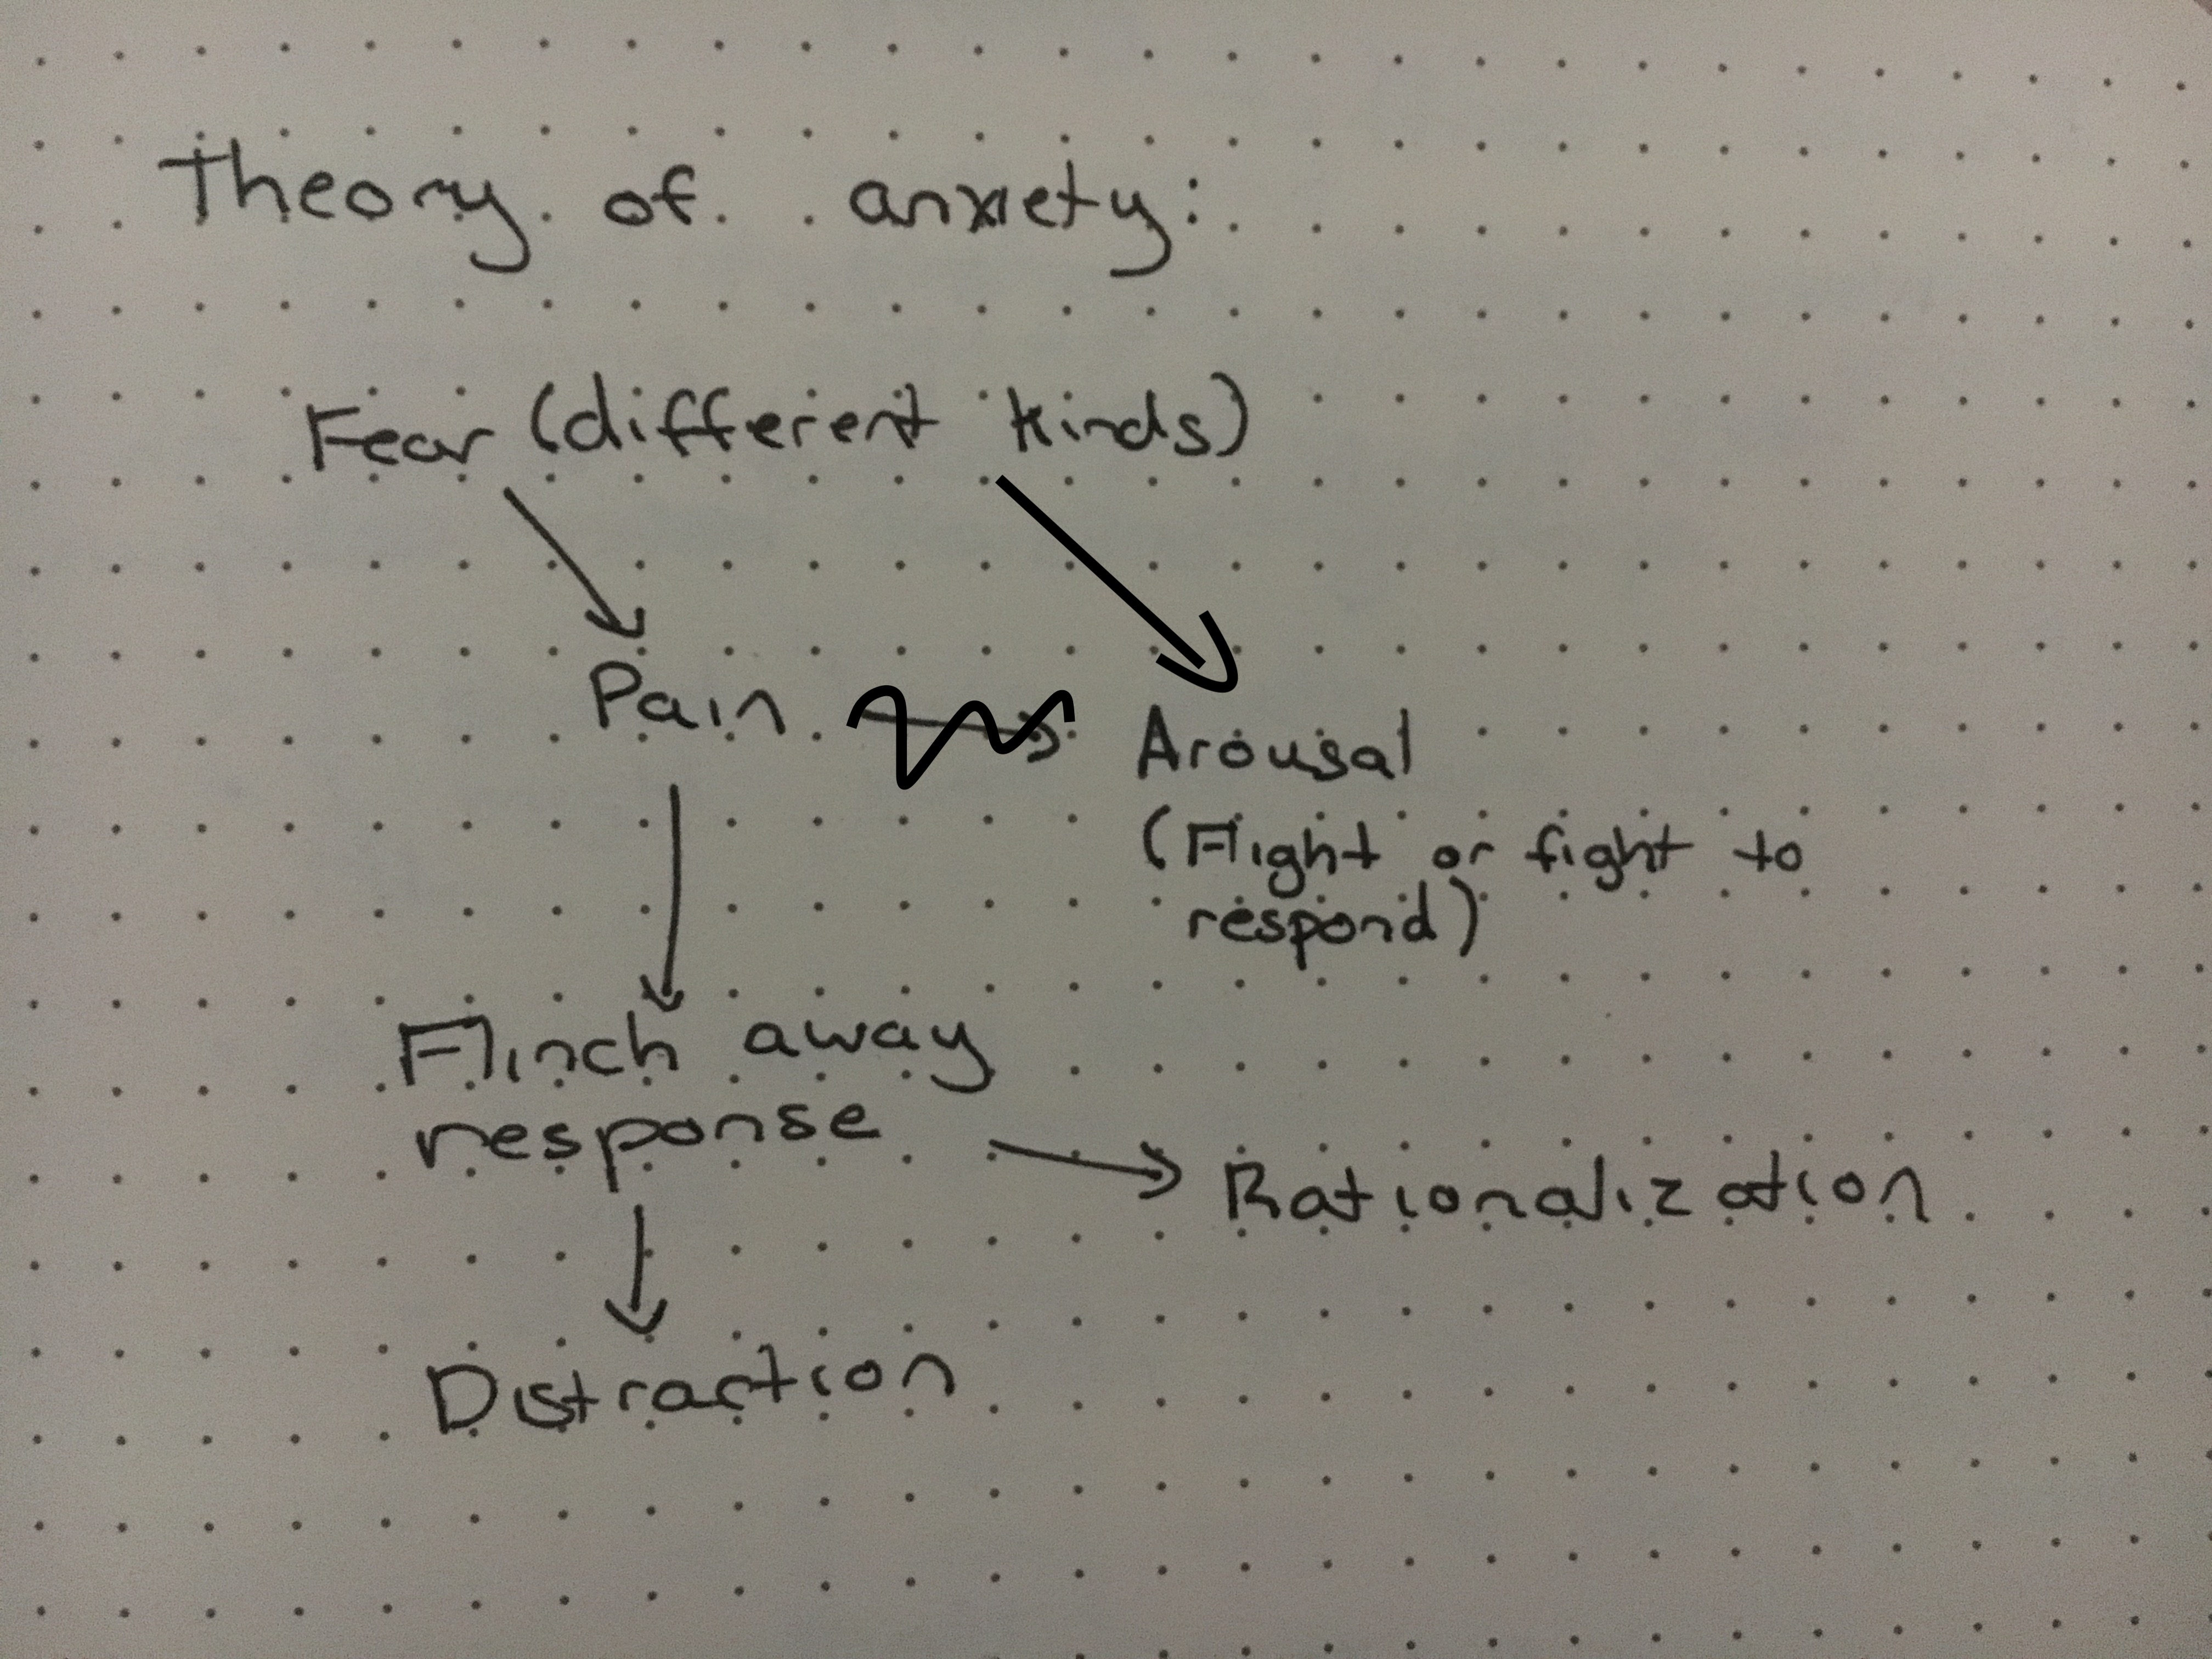 Theory of anxiety:
Fear (different kinds)
Pain
Arousal
(Flight or fight to
respond)
Flinch away
response
Rationalization
Distraction